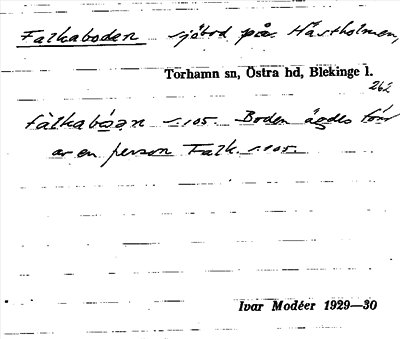 Falkaboden sjöbod på Hästholmen,
Torhamn sn, Östra hd, Blekinge l.
262
fàlkabóan s. 105. Boden ägdes förr
av en person Falk. s. 105.
Ivar Modéer 1929—30